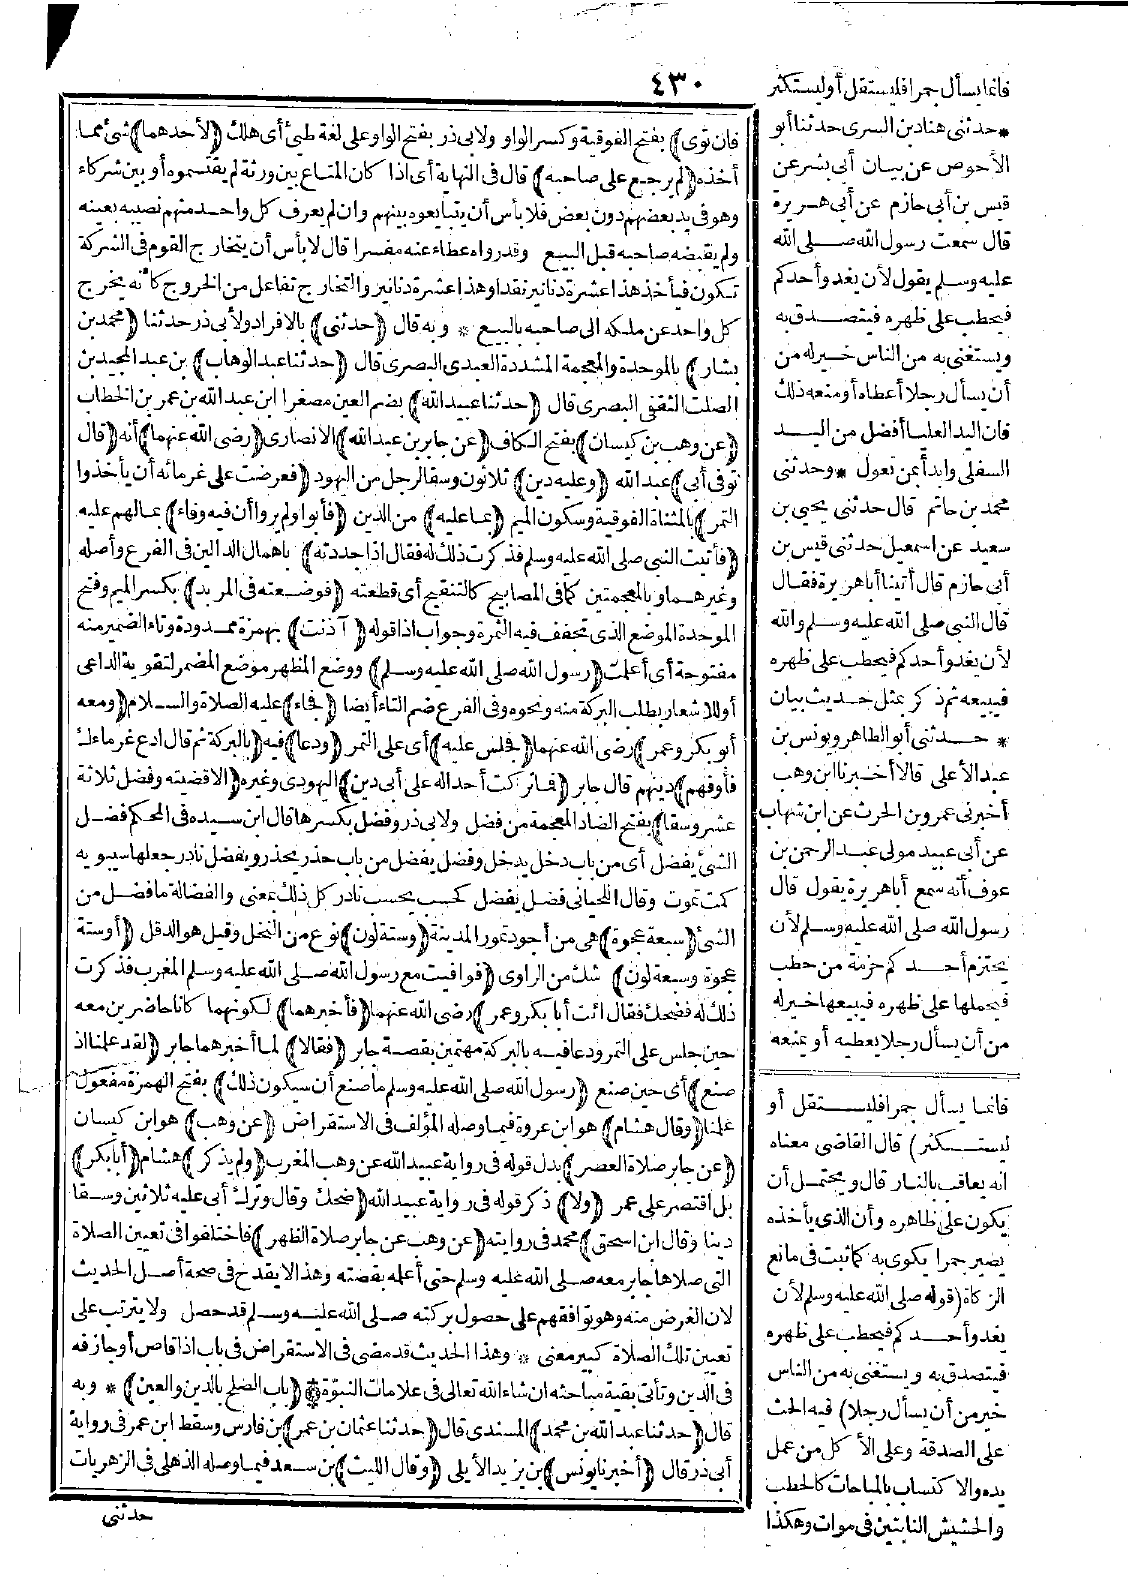 ٤٣٠
فان توى) بفتح الفوقية وكسر الواو ولابى ذر بفتح الواو على لغة طيئ أى هلك (لأحدهما) شئ مما
أخذه (لم يرجع على صاحبه) قال فى النهاية أى اذا كان المتاع بين ورثة لم يقتسموه أو بين شركاء
وهو فى يد بعضهم دون بعض فلا بأس أن يتبايعوه بينهم وان لم يعرف كل واحد منهم نصيبه بعينه
ولم يقبضه صاحبه قبل البيع وقد رواه عطاء عنه مفسرا قال لا بأس أن يتخارج القوم فى الشركة
تكون فيأخذ هذا عشرة دنانير نقدا وهذا عشرة دنانير والتخارج تفاعل من الخروج كأنه يخرج
كل واحد عن ملكه الى صاحبه بالبيع * وبه قال (حدثنى) بالافراد ولأبى ذر حدثنا (محمد بن
بشار) بالموحدة والمعجمة المشددة العبدى البصرى قال (حدثنا عبد الوهاب) بن عبد المجيد بن
الصلت الثقفى البصرى قال (حدثنا عبيد الله) بضم العين مصغرا ابن عبد الله بن عمر بن الخطاب
(عن وهب بن كيسان) بفتح الكاف (عن جابر بن عبد الله) الانصارى (رضى الله عنهما) أنه (قال
توفى أبى) عبد الله (وعليه دين) ثلاثون وسقا لرجل من اليهود (فعرضت على غرمائه أن يأخذوا
التمر) بالمثناة الفوقية وسكون الميم (بما عليه) من الدين (فأبوا ولم يروا أن فيه وفاء) بما لهم عليه
(فأتيت النبى صلى الله عليه وسلم فذكرت ذلك له فقال اذا جددته) باهمال الدالين فى الفرع وأصله
وغيرهما وبالمعجمتين كما فى المصابيح كالتنقيح أى قطعته (فوضعته فى المربد) بكسر الميم وفتح
الموحدة الموضع الذى تجفف فيه الثمرة وجواب اذا قوله (آذنت) بهمزة ممدودة وتاء الضمير منه
مفتوحة أى أعلمت (رسول الله صلى الله عليه وسلم) ووضع المظهر موضع المضمر لتقوية الداعى
أو للاشعار بطلب البركة منه ونحوه وفى الفرع ضم التاء أيضا (فجاء) عليه الصلاة والسلام (ومعه
أبو بكر وعمر) رضى الله عنهما (فجلس عليه) أى على التمر (ودعا) فيه (بالبركة ثم قال ادع غرماءك
فأوفهم) دينهم قال جابر (فما تركت أحدا له على أبى دين) اليهودى وغيره (الا قضيته وفضل ثلاثة
عشر وسقا) بفتح الضاد المعجمة من فضل ولابى ذر وفضل بكسرها قال ابن سيده فى المحكم فضل
الشئ يفضل أى من باب دخل يدخل وفضل يفضل من باب حذر يحذر ويفضل نادر جعلها سيبويه
كمت تموت وقال اللحيانى فضل يفضل كحسب يحسب نادر كل ذلك بمعنى والفضالة ما فضل من
الشئ (سبعة عجوة) هى من أجود تمور المدينة (وستة لون) نوع من النخل وقيل هو الدقل (أو ستة
عجوة وسبعة لون) شك من الراوى (فوافيت مع رسول الله صلى الله عليه وسلم المغرب فذكرت
ذلك له فضحك فقال ائت أبا بكر وعمر) رضى الله عنهما (فأخبرهما) لكونهما كانا حاضرين معه
حين جلس على التمر ودعا فيه بالبركة مهتمين بقصة جابر (فقالا) لما أخبرهما جابر (لقد علمنا اذ
صنع) أى حين صنع (رسول الله صلى الله عليه وسلم ما صنع أن سيكون ذلك) بفتح الهمزة مفعول
علمنا (وقال هشام) هو ابن عروة فيما وصله المؤلف فى الاستقراض (عن وهب) هو ابن كيسان
(عن جابر صلاة العصر) بدل قوله فى رواية عبيد الله عن وهب المغرب (ولم يذكر) هشام (أبا بكر)
بل اقتصر على عمر (ولا) ذكر قوله فى رواية عبيد الله (ضحك وقال وترك أبى عليه ثلاثين وسقا
دينا وقال ابن اسحق) محمد فى روايته (عن وهب عن جابر صلاة الظهر) فاختلفوا فى تعيين الصلاة
التى صلاها جابر معه صلى الله عليه وسلم حتى أعلمه بقضته وهذا لا يقدح فى صحة أصل الحديث
لان الغرض منه وهو توافقهم على حصول بركته صلى الله عليه وسلم قد حصل ولا يترتب على
تعيين تلك الصلاة كبير معنى * وهذا الحديث قد مضى فى الاستقراض فى باب اذا قاص أو جازفه
فى الدين وتأتى بقية مباحثه ان شاء الله تعالى فى علامات النبوة * (باب الصلح بالدين والعين) * وبه
قال (حدثنا عبد الله بن محمد) المسندى قال (حدثنا عثمان بن عمر) بن فارس وسقط ابن عمر فى رواية
أبى ذر قال (أخبرنا يونس) بن يزيد الأيلى (وقال الليث) بن سعد فيما وصله الذهلى فى الزهريات
حدثنى
فانما يسأل جمرا فليستقل أو ليستكثر
* حدثنى هناد بن السرى حدثنا أبو
الأحوص عن بيان أبى بشر عن
قيس بن أبى حازم عن أبى هريرة
قال سمعت رسول الله صلى الله
عليه وسلم يقول لأن يغدو أحدكم
فيحطب على ظهره فيتصدق به
ويستغنى به من الناس خير له من
أن يسأل رجلا أعطاه أو منعه ذلك
فان اليد العليا أفضل من اليد
السفلى وابدأ بمن تعول * وحدثنى
محمد بن حاتم قال حدثنى يحيى بن
سعيد عن اسمعيل حدثنى قيس بن
أبى حازم قال أتينا أبا هريرة فقال
قال النبى صلى الله عليه وسلم والله
لأن يغدو أحدكم فيحطب على ظهره
فيبيعه ثم ذكر بمثل حديث بيان
* حدثنى أبو الطاهر ويونس بن
عبد الأعلى قالا أخبرنا ابن وهب
أخبرنى عمرو بن الحرث عن ابن شهاب
عن أبى عبيد مولى عبد الرحمن بن
عوف أنه سمع أبا هريرة يقول قال
رسول الله صلى الله عليه وسلم لأن
يحتزم أحدكم حزمة من حطب
فيحملها على ظهره فيبيعها خير له
من أن يسأل رجلا يعطيه أو يمنعه
فانما يسأل جمرا فليستقل أو
ليستكثر) قال القاضى معناه
انه يعاقب بالنار قال ويحتمل أن
يكون على ظاهره وأن الذى يأخذه
يصير جمرا يكوى به كما ثبت فى مانع
الزكاة (قوله صلى الله عليه وسلم لأن
يغدو أحدكم فيحطب على ظهره
فيتصدق به ويستغنى به من الناس
خير من أن يسأل رجلا) فيه الحث
على الصدقة وعلى الأكل من عمل
يده والاكتساب بالمباحات كالحطب
والحشيش النابتين فى موات وهكذا